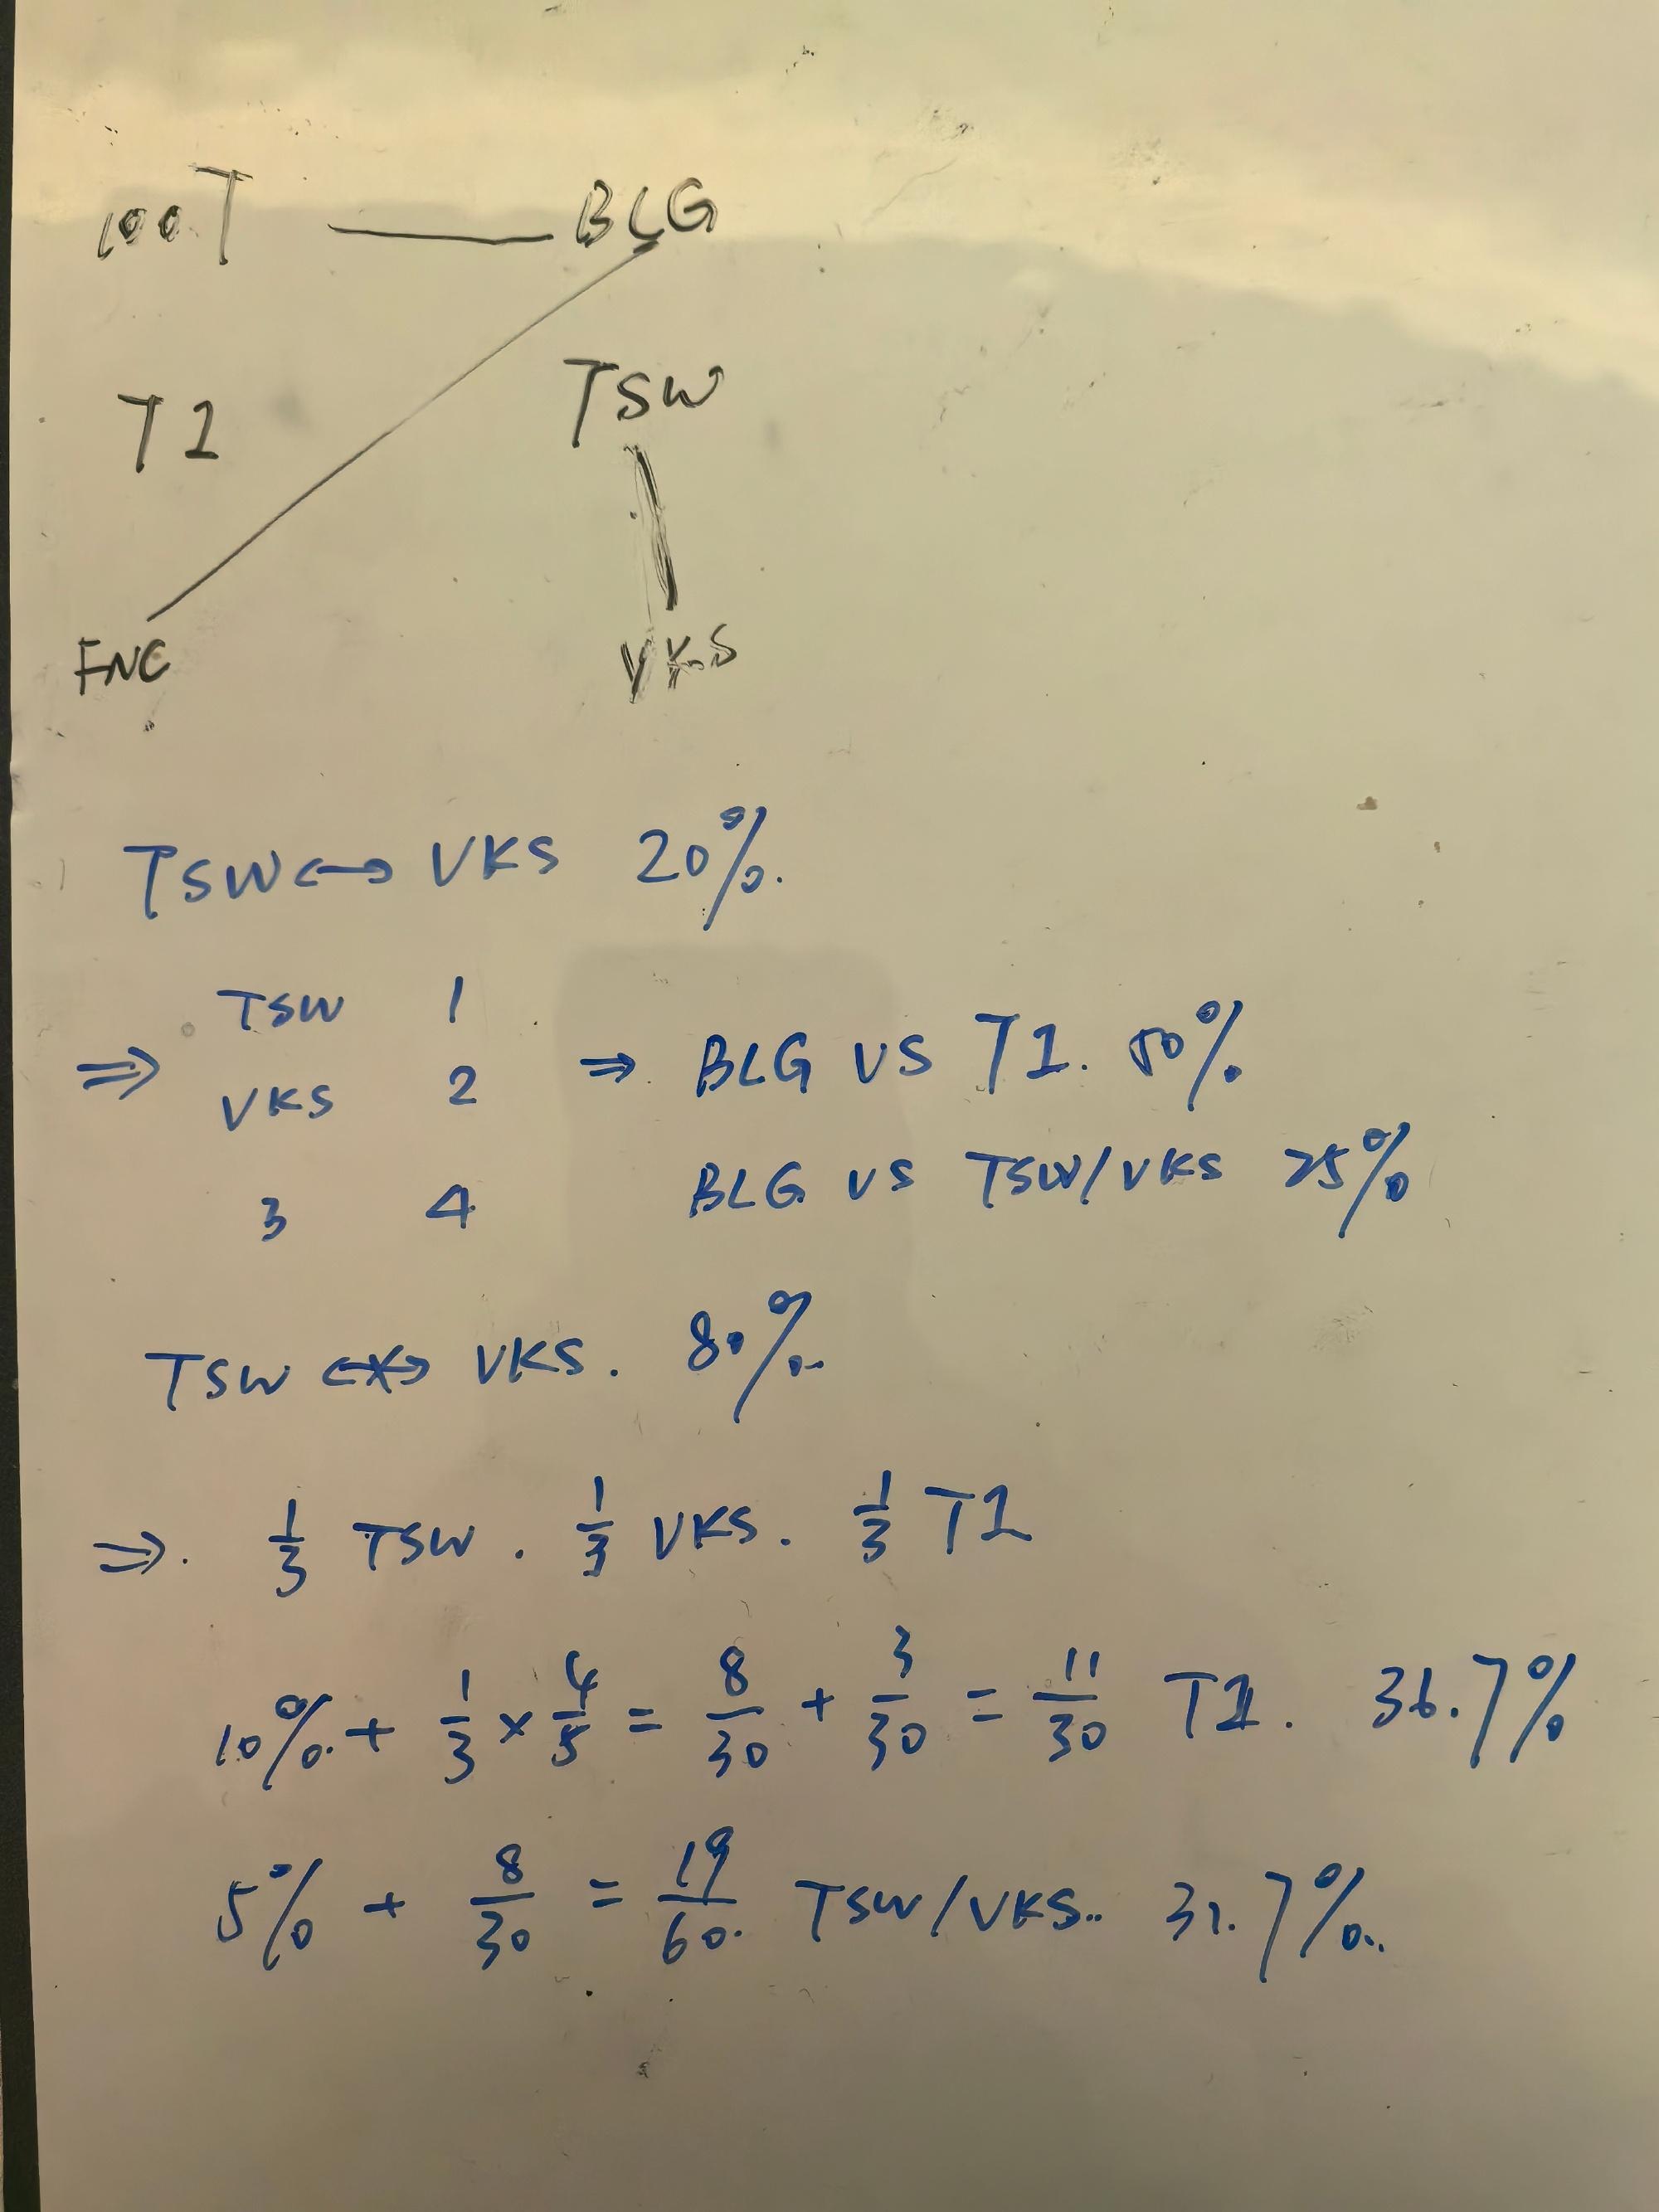 100T — BLG
TSW
T1
FNC
VKS
TSW ↔ VKS 20%.
TSW 1
⇒ VKS 2 ⇒ BLG VS T1. 50%
3 4 BLG VS TSW/VKS 25%
TSW <-x-> VKS. 80%.
⇒. 1/3 TSW. 1/3 VKS. 1/3 T1
10% + 1/3 × 4/5 = 8/30 + 3/30 = 11/30 T1. 36.7%
5% + 8/30 = 19/60. TSW/VKS.. 31.7%..